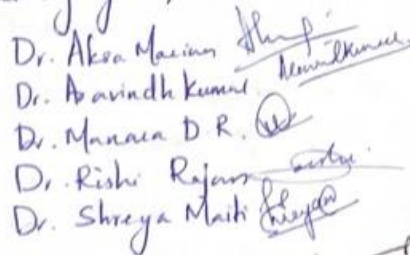 Dr. Aksa Mariam
Dr. Aravindh Kumar
Dr. Manasa D R.
Dr. Rishi Rajan
Dr. Shreya Maiti Shreya